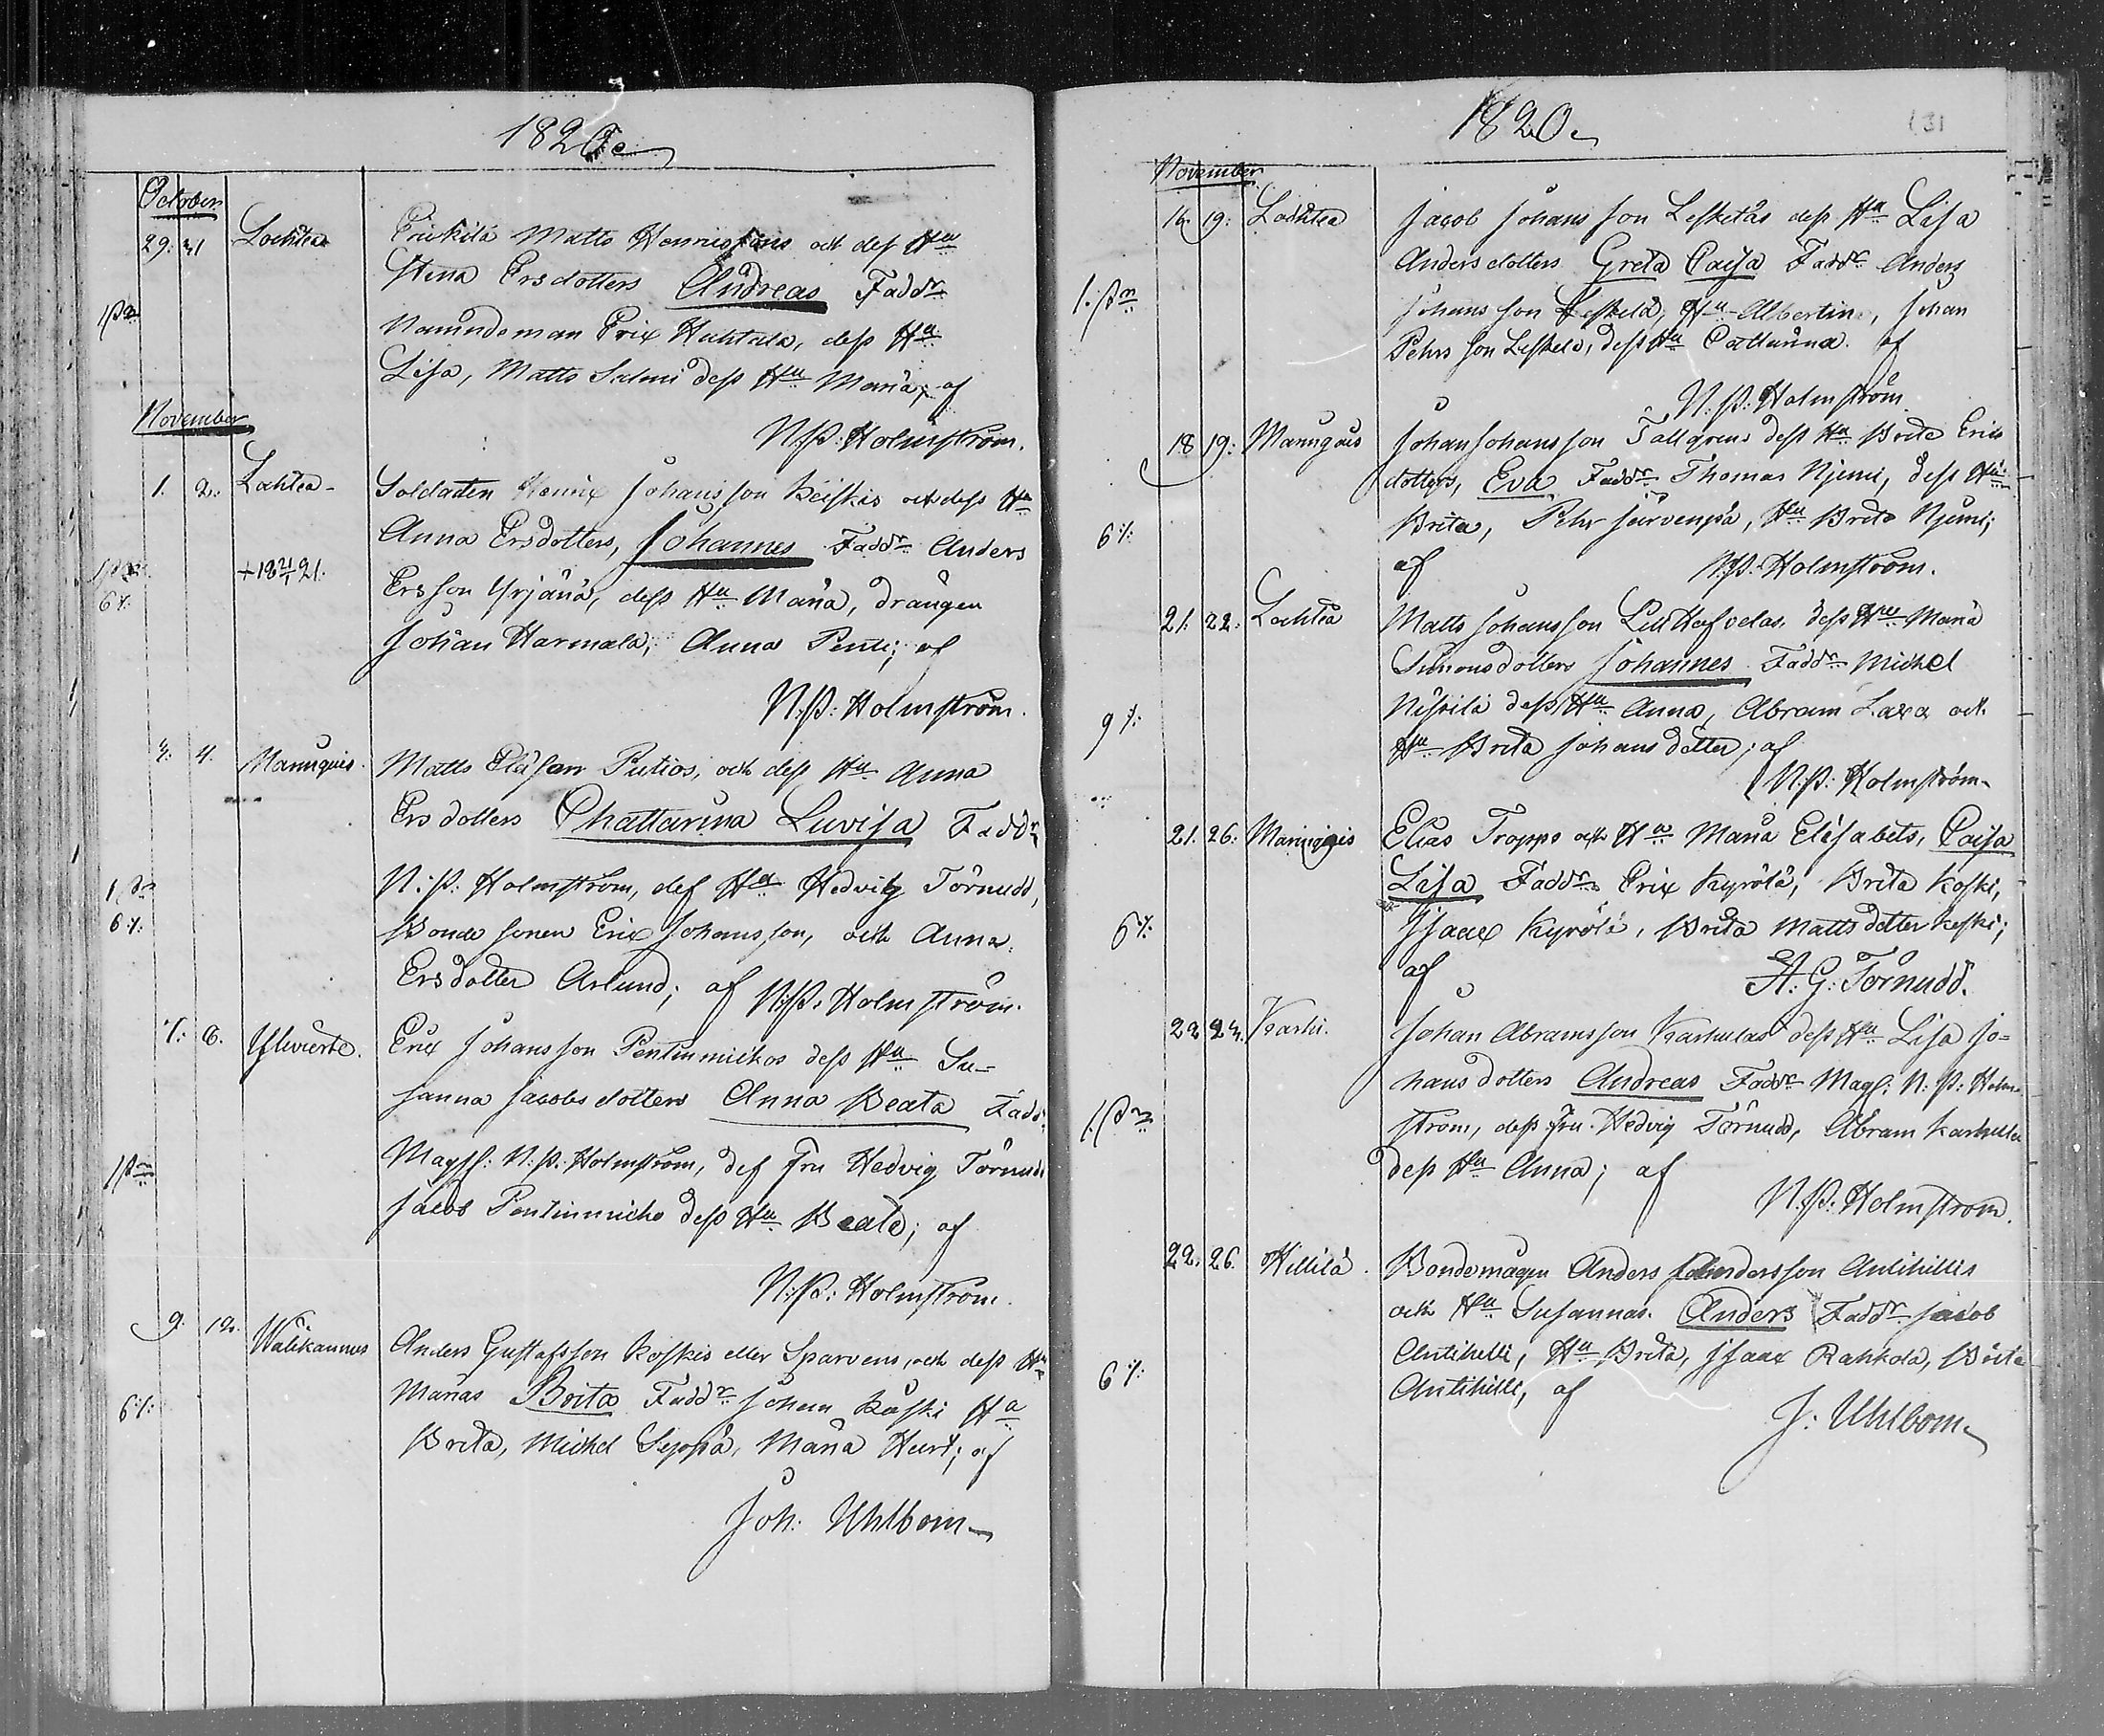 1820
October
29. 31 Lochtea Erickilä Matts Henricssons och dess Hu
Stena Ersdotters Andreas Faddr
Namndeman Erix Huhtala, dess Hu
Lisa, Matts Salmi dess Hu Maria, af
N:P: Holmström.
November
1. 2. Lochtea Soldaten Henrix Johansson Keiskis och dess Hu
Anna Ersdotters, Johannes Faddr Anders
+ 18 21/1 21. Ersson Yrjänä, dess Hu Maria, drängen
6/:
Johan Harmala, Anna Penti; af
N:P: Holmström.
3. 4. Mannquis. Matts Eliæson Putios, och dess Hu Anna
Ersdotters Chattarina Lovisa Faddr
N:P: Holmström, dess Hu Hedvig Törnudd,
6/:
Bonde sonen Erix Johansson, och Anna
Ersdotter Aslund; af N:P: Holmström.
7. 8. Ylivierke. Erix Johansson Pentinmickos dess Hu Su-
sanna Jacobsdotters Anna Beata Fadd:
Magst: N:P: Holmström, dess Fru Hedvig Törnudd
Jacob Pentinmicko dess Hu Beata; af
N:P: Holmström.
9. 12. Wälikannus Anders Gustafsson Koskis eller Sparvens, och dess Hu
6/: Marias Brita Faddr Johan Koski Hu
Brita, Michel Seppä, Maria Hurt; af
Joh: Uhlbom
1820
131
November
16. 19. Lochtea Jacob Johansson Leskeläs dess Hu Lisa
Andersdotters Greta Caisa Faddr Anders
Johansson Leskelä, Hu Albertina, Johan
Pehrsson Leskelä, dess Hu Cattarina af
N:P: Holmström
18 19: Mannquis Johan Johansson Tallgrens dess Hu Brita Ericks
dotters, Eva Faddr Thomas Njemi, dess Hu
6/: Brita, Pehr Järvenpä, Hu Brita Njemi;
af N:P: Holmström.
21. 22. Lochtea Matts Johansson Lill Hafvelas dess Hu Maria
Simonsdotters Johannes Faddr Michel
9/: Nissilä dess Hu Anna, Abram Laxa och
Hu Brita Johansdotter; af
N:P: Holmström
21. 26: Mannquis Elias Tropps och Hu Maria Elisabets, Caisa
Lisa Faddr Erix Kyrölä, Brita Koski,
6/: Isaac Kyrölä, Brita Mattsdotter Keski;
af A: G: Törnudd.
22 23. Karhi. Johan Abramsson Karhulas dess Hu Lisa Jo-
hansdotters Andreas Faddr Mags: N: P: Holm
ström, dess fru Hedvig Törnudd, Abram Karhula
dess Hu Anna; af
N:P: Holmström.
22. 26. Hillilä. Bondemågen Anders Andersson Antihillis
och Hu Susannas. Anders Faddr Jacob
6/: Antihilli, Hu Brita, Isaac Rahkola, Brita
Antihilli, af
J: Uhlbom